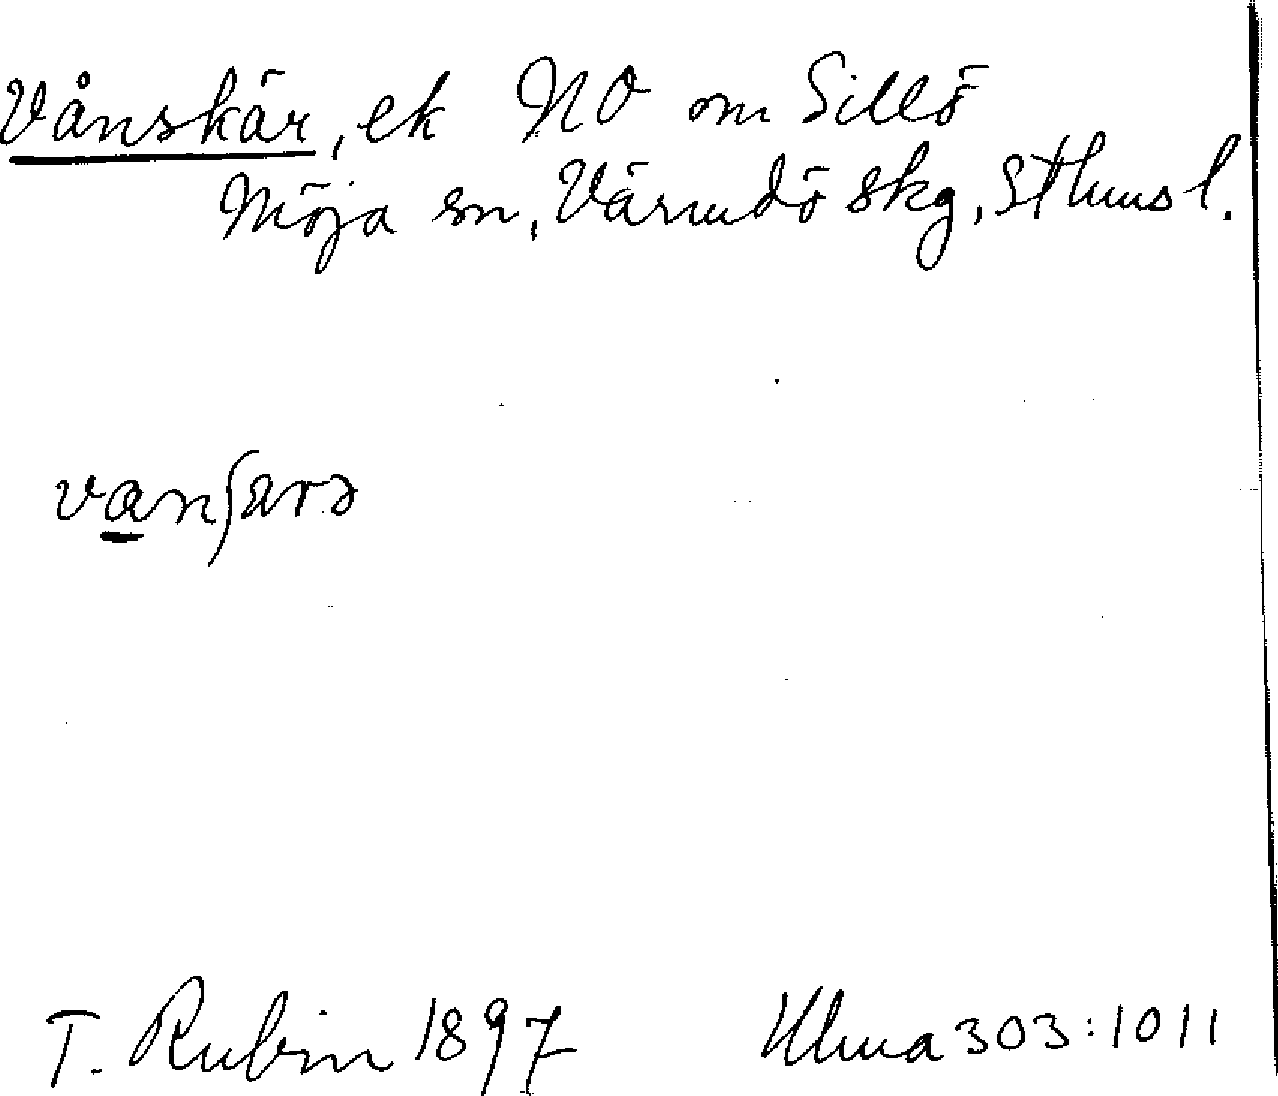 Vånskär, ek NO om Sillö
Möja sn, Värmdö skg, Sthms l.
vanʃærə
T. Rubin 1897 Ulma 303:1011